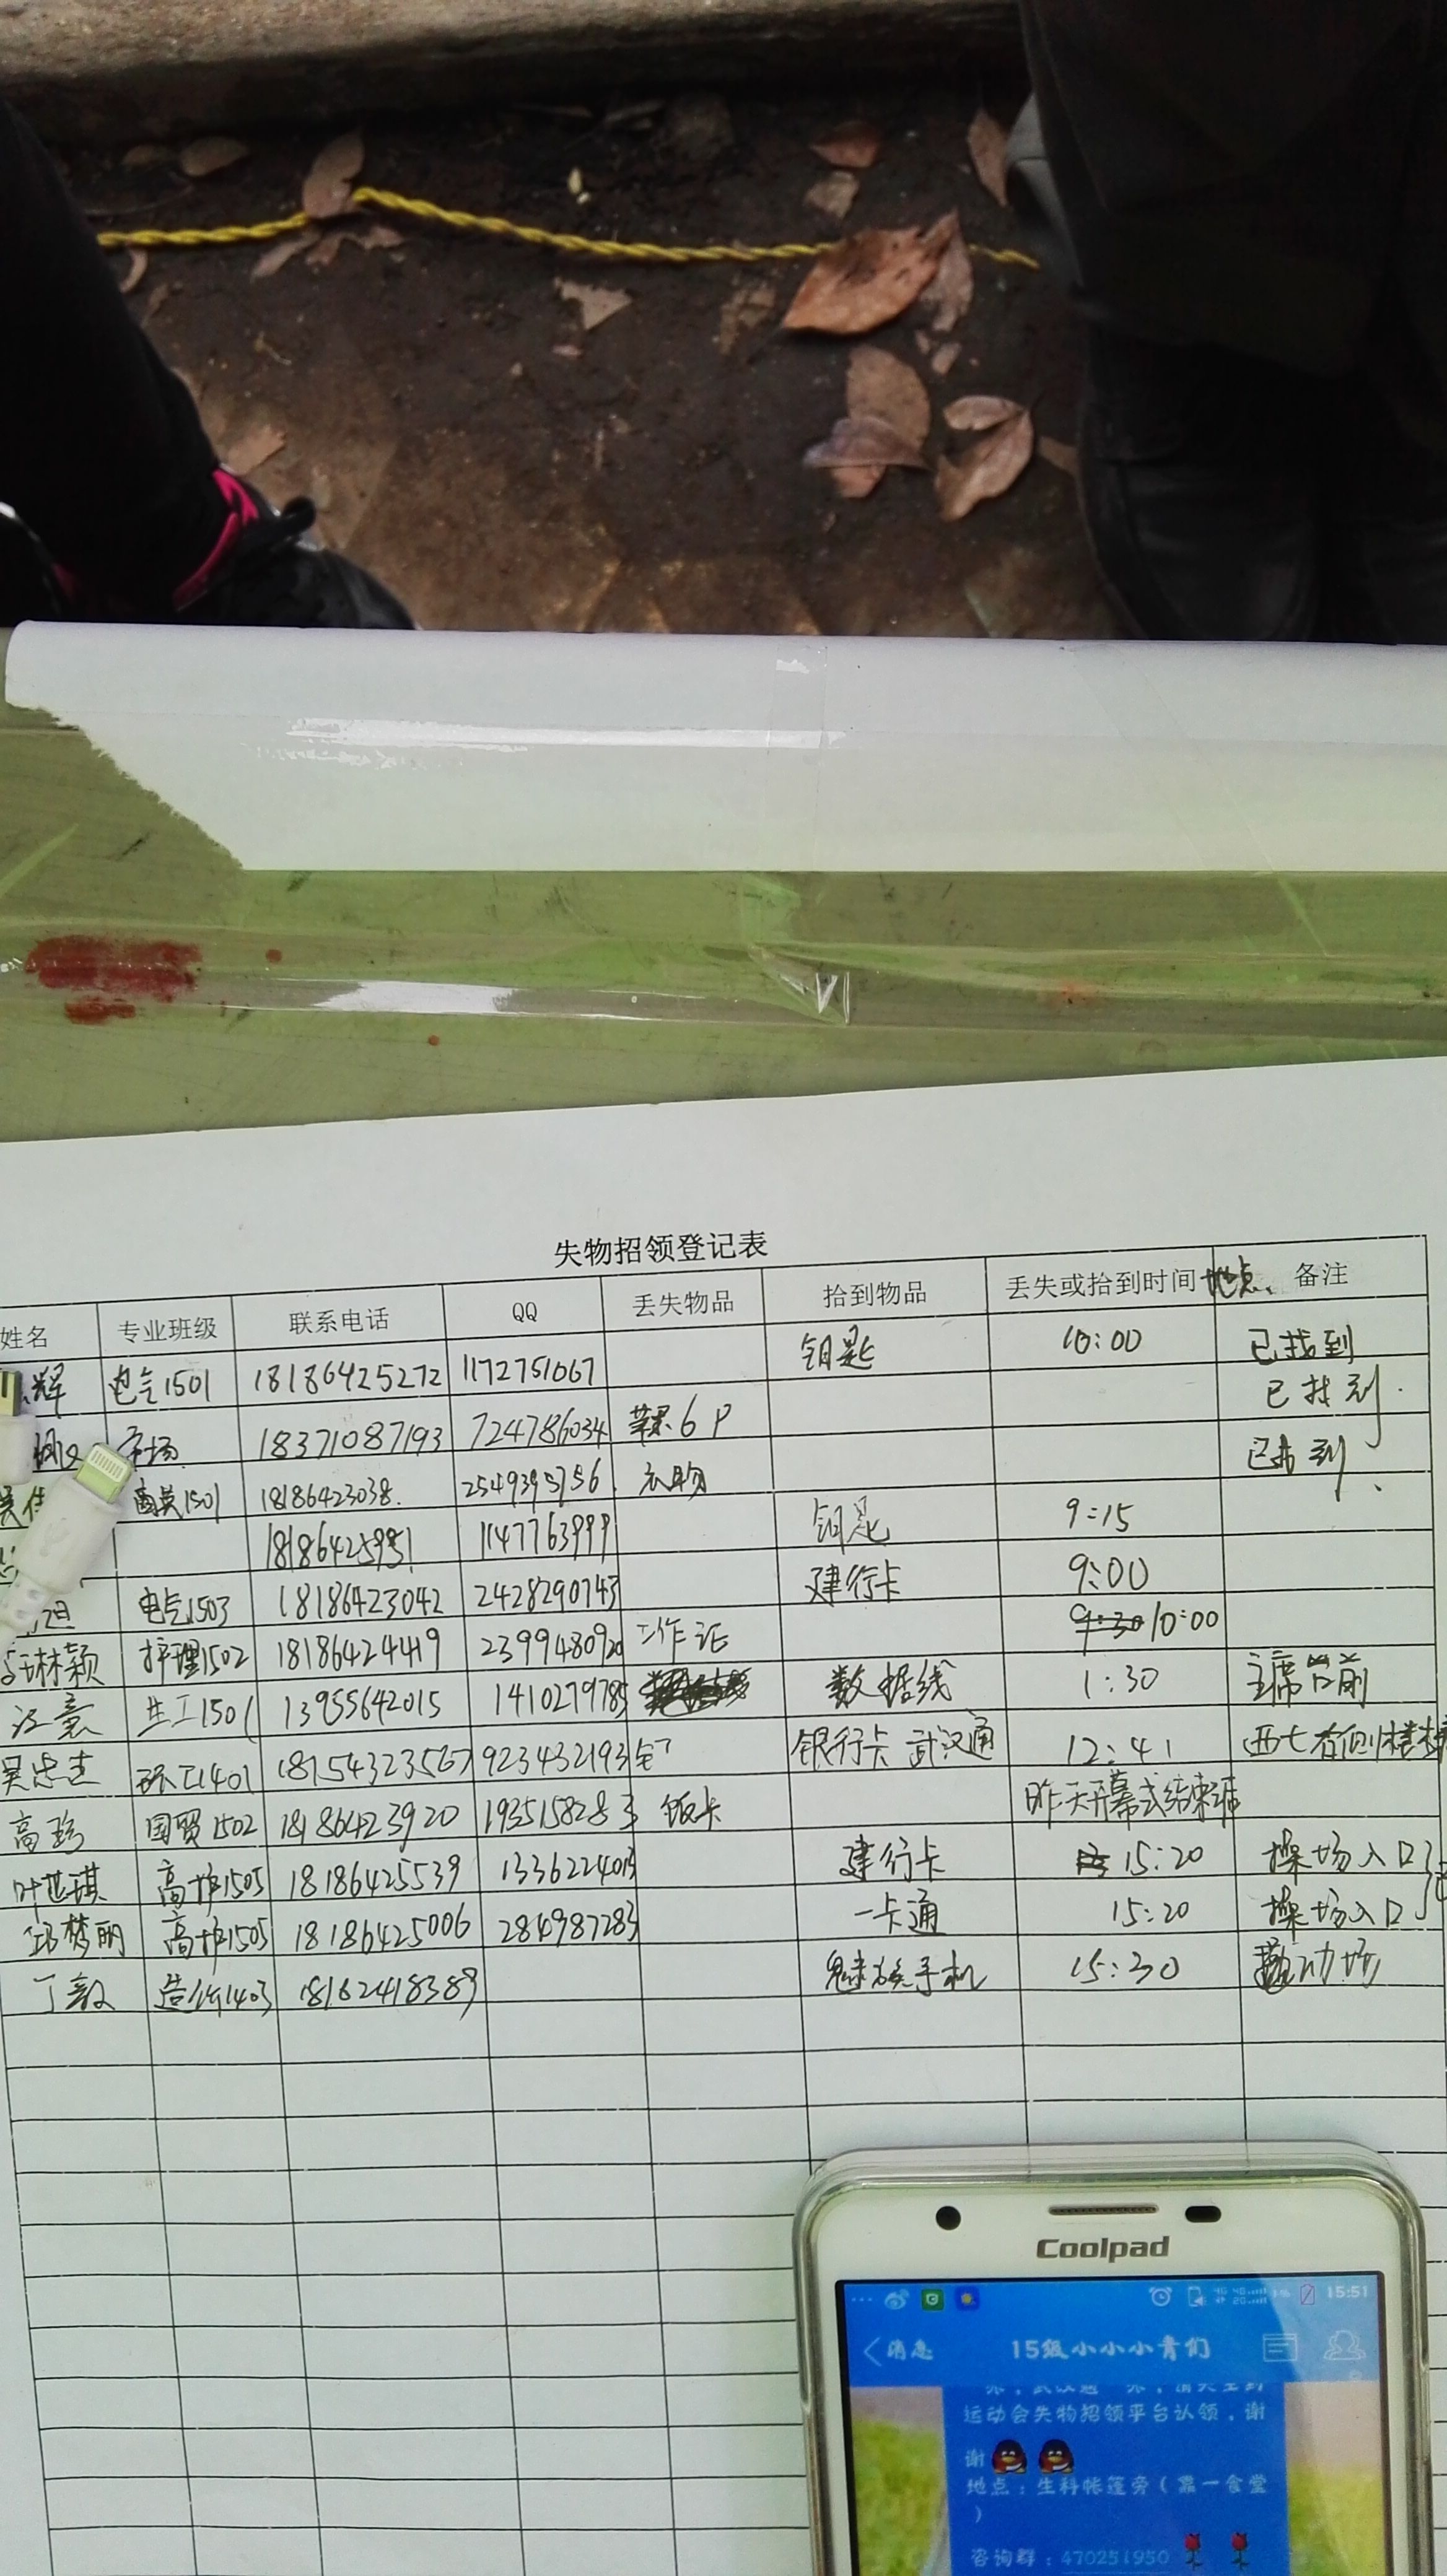 失物招领登记表
姓名 专业班级 联系电话 QQ 丢失物品 拾到物品 丢失或拾到时间 地点、备注
辉 电气1501 18186425272 1172751067 钥匙 10:00 已找到
市场 18371087193 724786034 苹果6P 已找到
商英1501 18186423038. 2549395756 衣物 已找到
1147763999 钥匙 9:15
旦 电气1503 18186423042 2428290743 建行卡 9:00
林颖 护理1502 18186424419 2399480920 工作证 10:00
汪意 生工1501 13955642015 1410279785 数据线 1:30 主席台前
吴忠杰 环工1401 18754323567 923432193 银行卡 武汉通 12:41 西七右侧
高珍 国贸1502 18186423920 1935158283 饭卡 昨天开幕式结束后
叶世琪 高护1505 18186425539 1336224013 建行卡 15:20 操场入口
邱梦丽 高护1505 18186425006 284987283 一卡通 15:20 操场入口
丁毅 造价1403 18162418389 魅族手机 15:30 运动场
Coolpad
15:51
消息 15级小小小青们
运动会失物招领平台认领，谢
谢
地点：生科帐篷旁（靠一食堂
）
咨询群：470251950